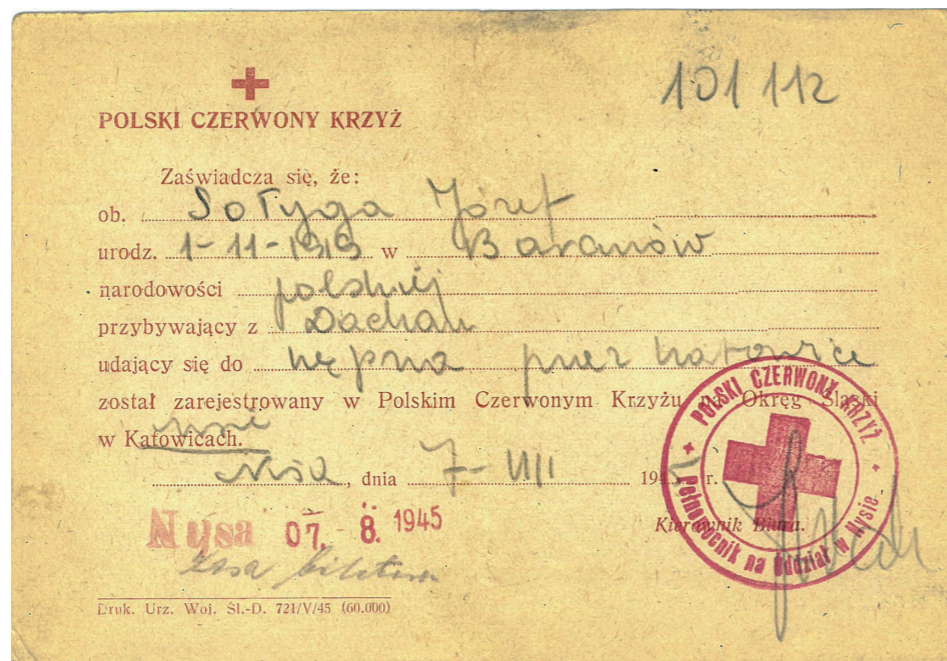 101112
POLSKI CZERWONY KRZYŻ
Zaświadcza się, że:
ob. Sołyga Józef
urodz. 1-11-1919 w Baranów
narodowości polskiej
przybywający z Dachau
udający się do Kępna przez Katowice
został zarejestrowany w Polskim Czerwonym Krzyżu na Okręg Śląski
w Katowicach.
Nisa, dnia 7-VIII 1945 r.
Nysa 07. 8. 1945
Kierownik Biura.
Kasa biletowa
POLSKI CZERWONY KRZYŻ
Pełnomocnik na Oddział w Nysie
Druk. Urz. Woj. Śl.-D. 721/V/45 (60.000)